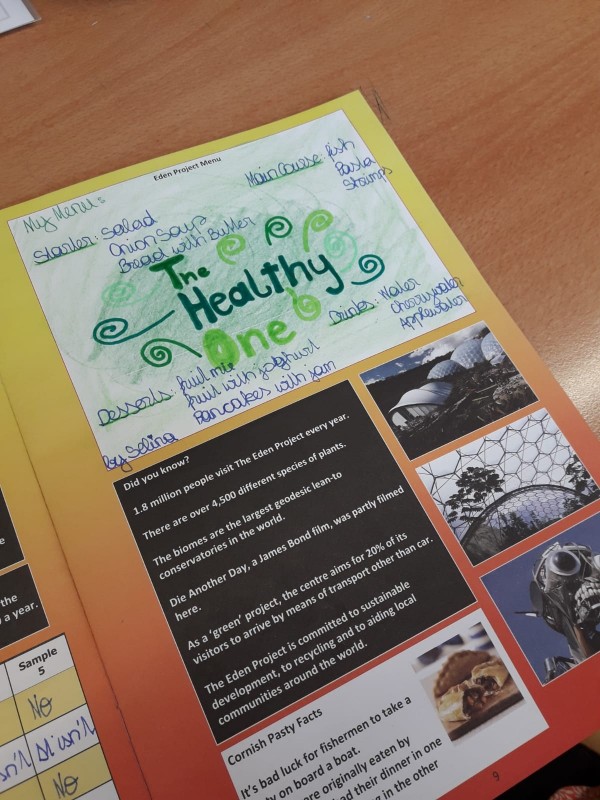 Eden Project Menu
My Menu:
Starter: Salad
Onion Soup
Bread with Butter
Main Course: fish
Pasta
Shrimps
The
Healthy
One
Drinks: Water
Cherrywater
Applewater
Desserts: fruit mix
fruit with joghurt
Pancakes with jam
by Selina
Did you know?
1.8 million people visit The Eden Project every year.
There are over 4,500 different species of plants.
The biomes are the largest geodesic lean-to
conservatories in the world.
Die Another Day, a James Bond film, was partly filmed
here.
As a 'green' project, the centre aims for 20% of its
visitors to arrive by means of transport other than car.
The Eden Project is committed to sustainable
development, to recycling and to aiding local
communities around the world.
Cornish Pasty Facts
It's bad luck for fishermen to take a
on board a boat.
originally eaten by
their dinner in one
in the other
9
the
a year.
Sample
5
No
It isn't
No